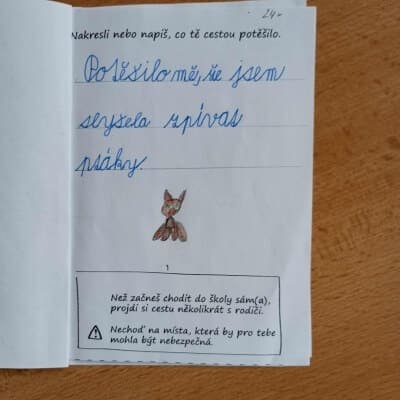 24~
Nakresli nebo napiš, co tě cestou potěšilo.
Potěšilo mě, že jsem
slyšela zpívat
ptáky.
1
Než začneš chodit do školy sám(a),
projdi si cestu několikrát s rodiči.
Nechoď na místa, která by pro tebe
mohla být nebezpečná.